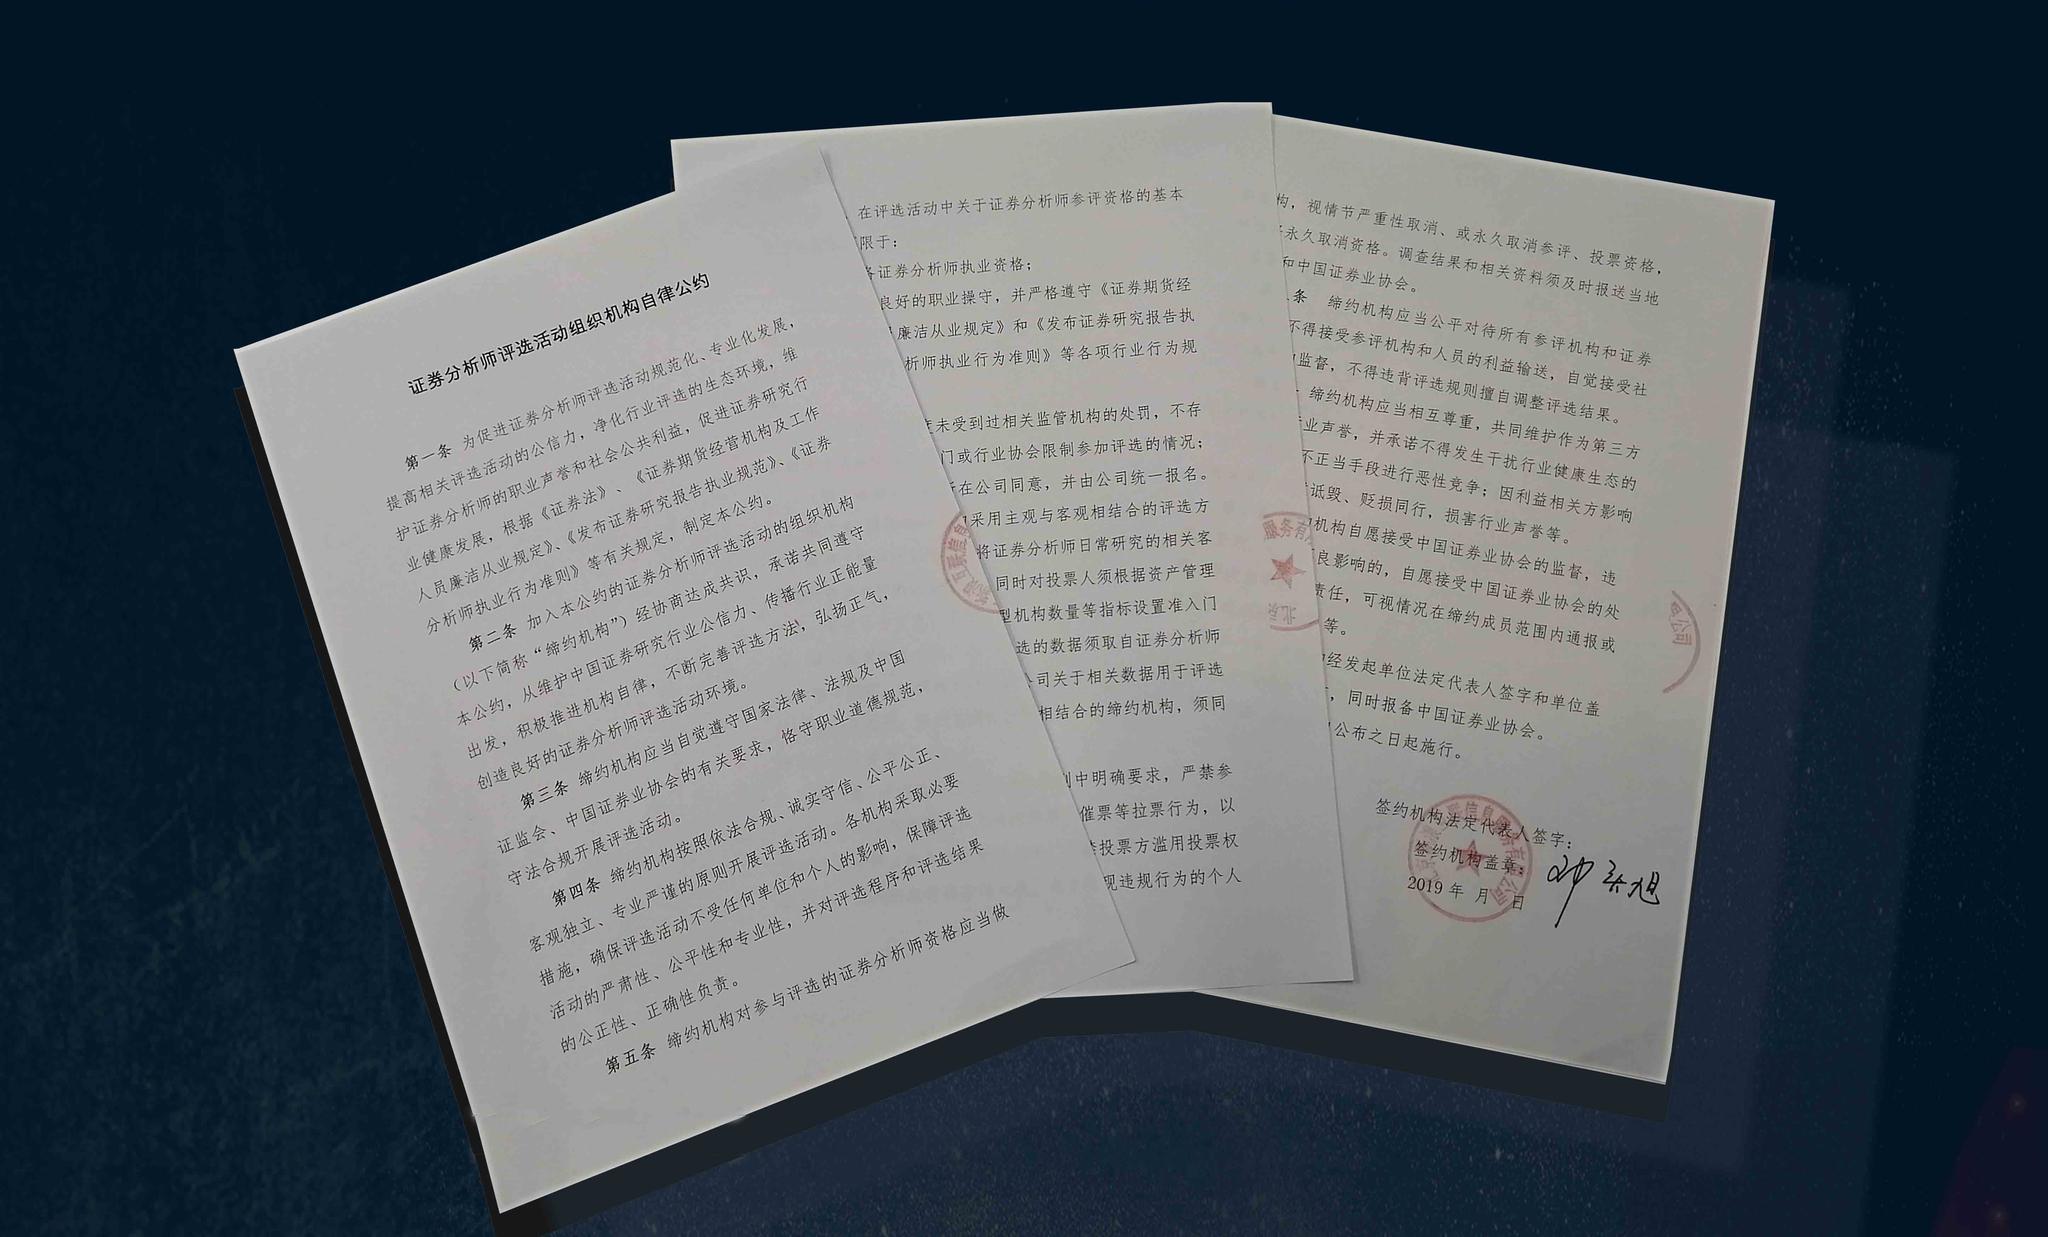 证券分析师评选活动组织机构自律公约
第一条 为促进证券分析师评选活动规范化、专业化发展，
提高相关评选活动的公信力，净化行业评选的生态环境，维
护证券分析师的职业声誉和社会公共利益，促进证券研究行
业健康发展，根据《证券法》、《证券期货经营机构及工作
人员廉洁从业规定》、《发布证券研究报告执业规范》、《证券
分析师执业行为准则》等有关规定，制定本公约。
第二条 加入本公约的证券分析师评选活动的组织机构
（以下简称“缔约机构”）经协商达成共识，承诺共同遵守
本公约，从维护中国证券研究行业公信力、传播行业正能量
出发，积极推进机构自律，不断完善评选方法，弘扬正气，
创造良好的证券分析师评选活动环境。
第三条 缔约机构应当自觉遵守国家法律、法规及中国
证监会、中国证券业协会的有关要求，恪守职业道德规范，
守法合规开展评选活动。
第四条 缔约机构按照依法合规、诚实守信、公平公正、
客观独立、专业严谨的原则开展评选活动。各机构采取必要
措施，确保评选活动不受任何单位和个人的影响，保障评选
活动的严肃性、公平性和专业性，并对评选程序和评选结果
的公正性、正确性负责。
第五条 缔约机构对参与评选的证券分析师资格应当做
，在评选活动中关于证券分析师参评资格的基本
限于：
证券分析师执业资格；
良好的职业操守，并严格遵守《证券期货经
廉洁从业规定》和《发布证券研究报告执
析师执业行为准则》等各项行业行为规
未受到过相关监管机构的处罚，不存
门或行业协会限制参加评选的情况；
在公司同意，并由公司统一报名。
采用主观与客观相结合的评选方
将证券分析师日常研究的相关客
同时对投票人须根据资产管理
型机构数量等指标设置准入门
选的数据须取自证券分析师
司关于相关数据用于评选
相结合的缔约机构，须同
中明确要求，严禁参
催票等拉票行为，以
投票方滥用投票权
现违规行为的个人
构，视情节严重性取消、或永久取消参评、投票资格，
永久取消资格。调查结果和相关资料须及时报送当地
和中国证券业协会。
条 缔约机构应当公平对待所有参评机构和证券
不得接受参评机构和人员的利益输送，自觉接受社
监督，不得违背评选规则擅自调整评选结果。
缔约机构应当相互尊重，共同维护作为第三方
业声誉，并承诺不得发生干扰行业健康生态的
不正当手段进行恶性竞争；因利益相关方影响
诋毁、贬损同行，损害行业声誉等。
机构自愿接受中国证券业协会的监督，违
良影响的，自愿接受中国证券业协会的处
责任，可视情况在缔约成员范围内通报或
等。
经发起单位法定代表人签字和单位盖
，同时报备中国证券业协会。
公布之日起施行。
签约机构法定代表人签字：
签约机构盖章：
2019 年 月 日